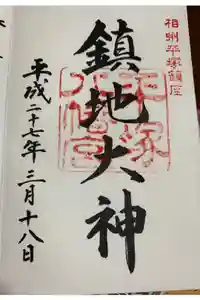 相州平塚鎮座
鎮地大神
平塚八幡宮
平成二十七年三月十八日